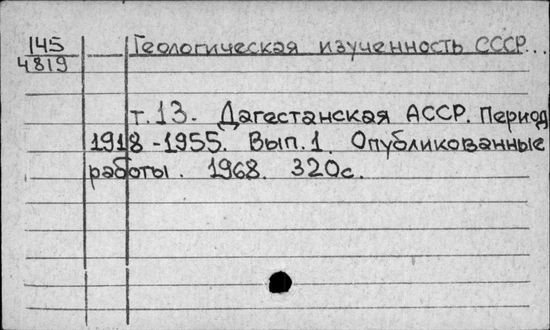 145 Геологическая изученность СССР...
4819
т.13. Дагестанская АССР. Период
1918-1955. Вып.1. Опубликованные
работы. 1968. 320с.